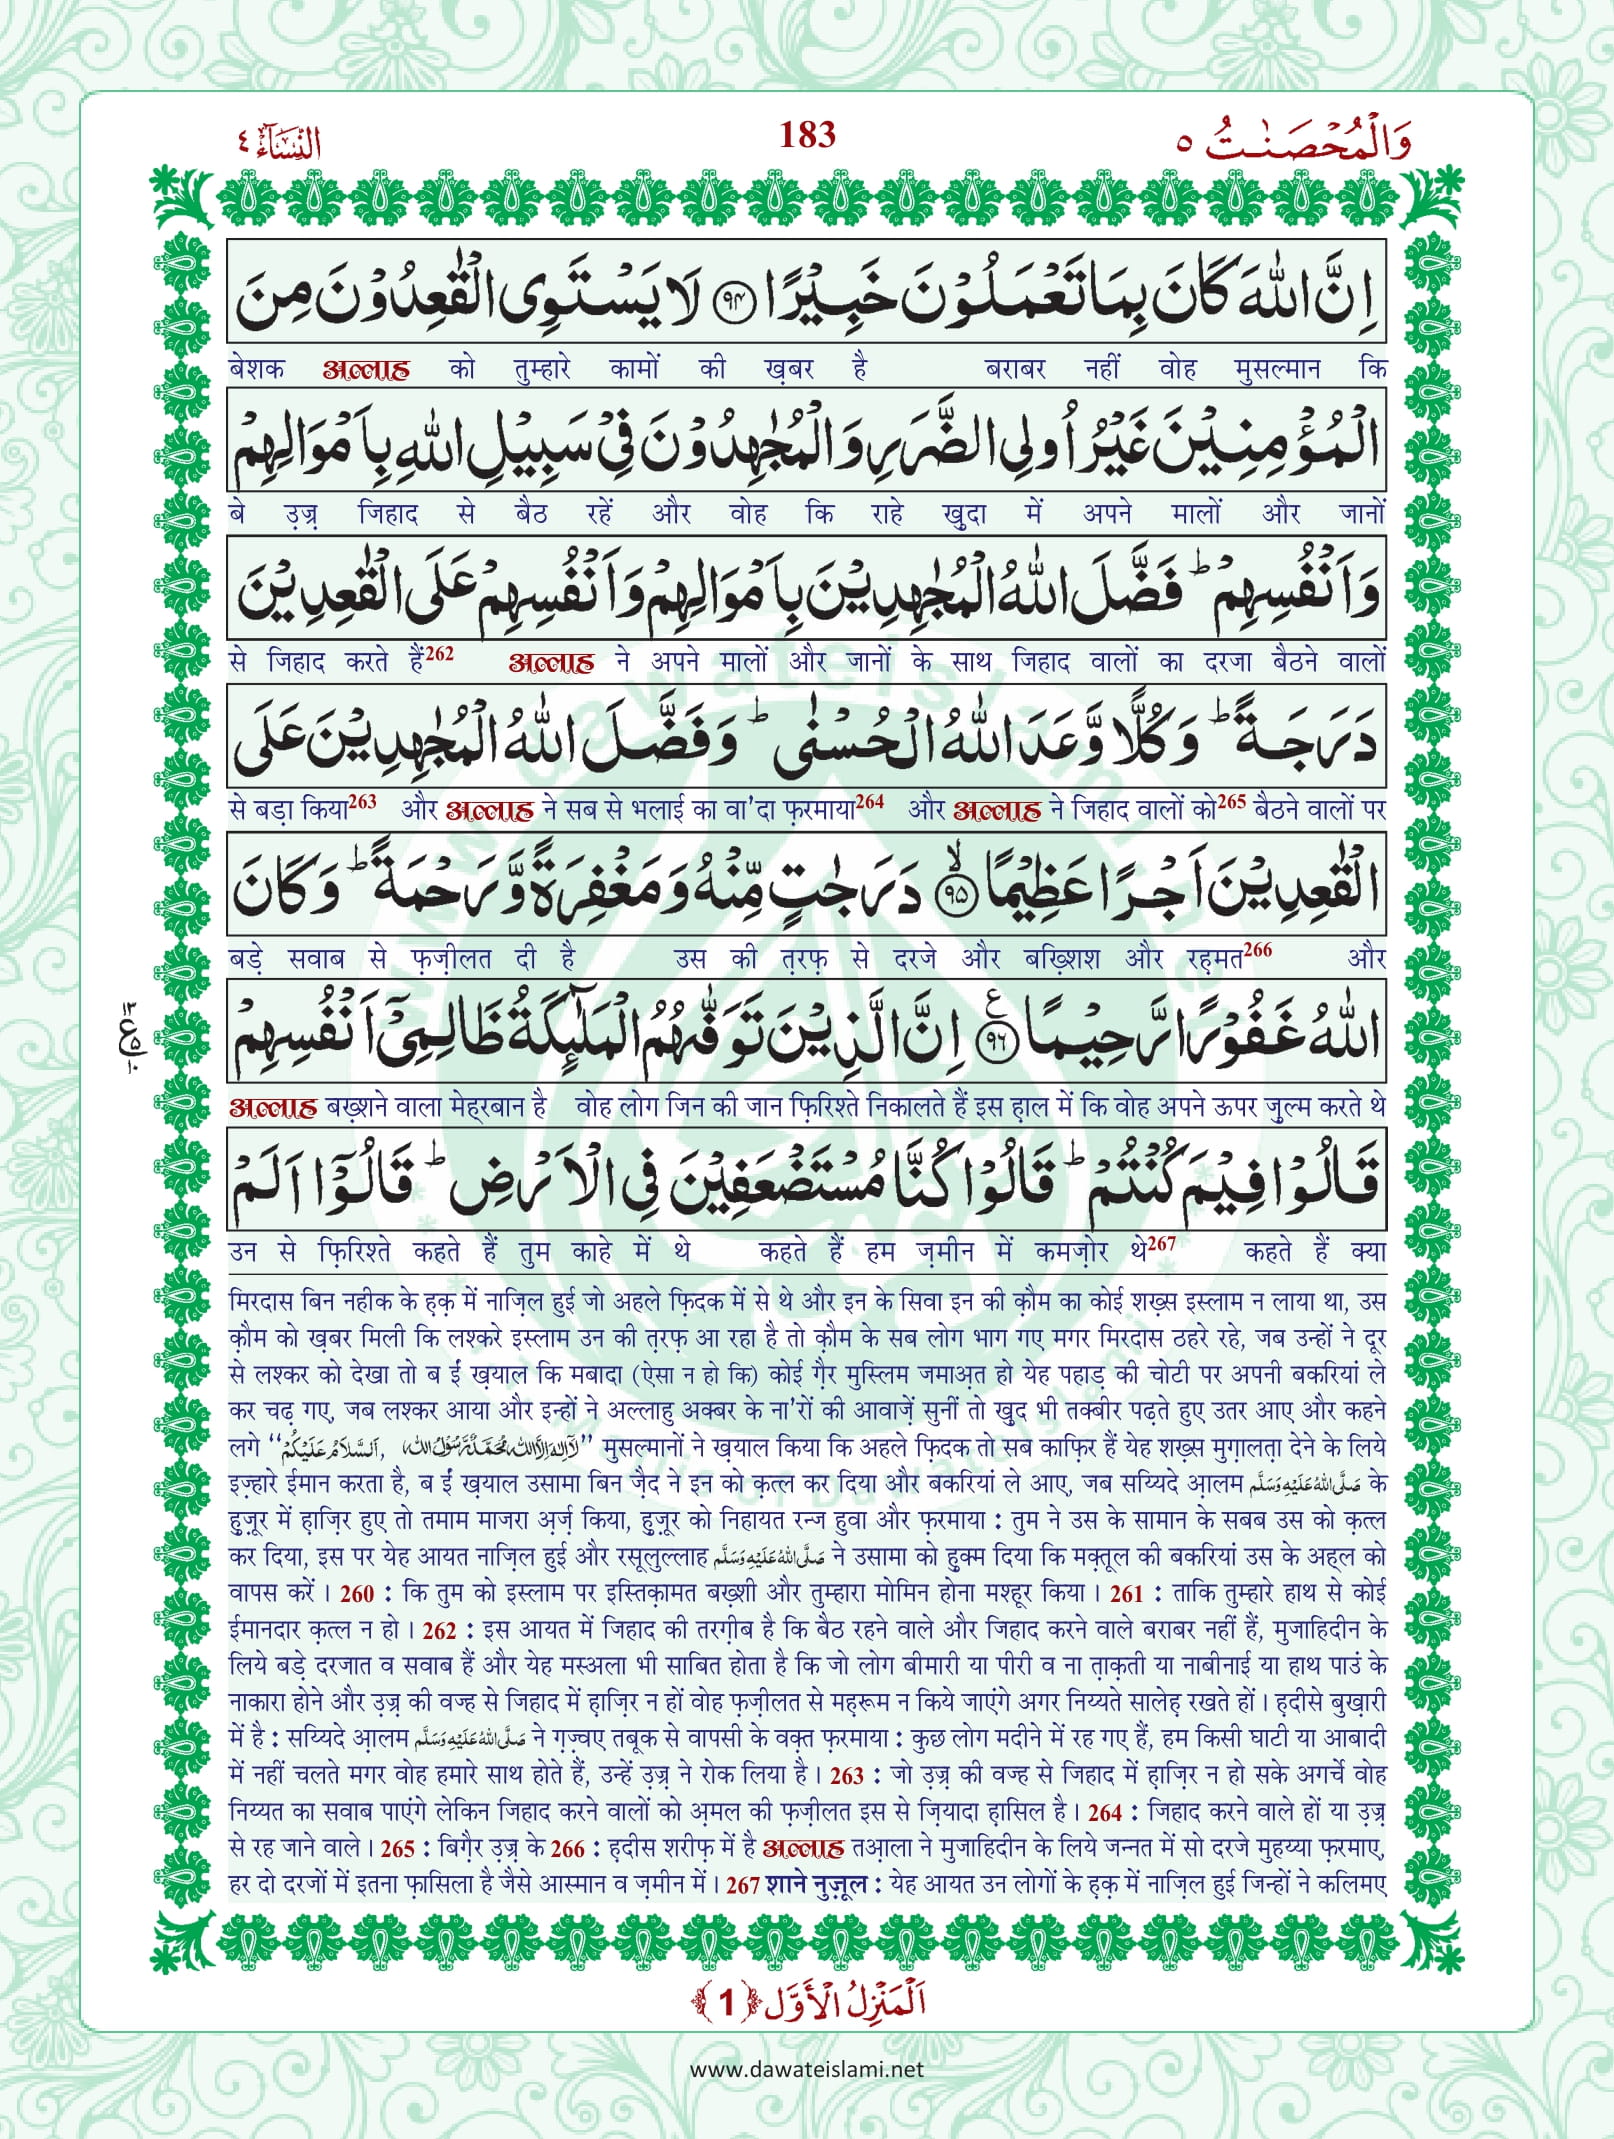 النِّسَآءُ ٤
183
وَالْمُحْصَنٰتُ ٥
اِنَّ اللّٰهَ كَانَ بِمَا تَعْمَلُوْنَ خَبِیْرًا ﴿۹۴﴾ لَا یَسْتَوِی الْقٰعِدُوْنَ مِنَ
बेशक अल्लाह को तुम्हारे कामों की ख़बर है बराबर नहीं वोह मुसल्मान कि
الْمُؤْمِنِیْنَ غَیْرُ اُولِی الضَّرَرِ وَ الْمُجٰهِدُوْنَ فِیْ سَبِیْلِ اللّٰهِ بِاَمْوَالِهِمْ
बे उ़ज़्र जिहाद से बैठ रहें और वोह कि राहे खुदा में अपने मालों और जानों
وَ اَنْفُسِهِمْ ؕ فَضَّلَ اللّٰهُ الْمُجٰهِدِیْنَ بِاَمْوَالِهِمْ وَ اَنْفُسِهِمْ عَلَی الْقٰعِدِیْنَ
से जिहाद करते हैं262 अल्लाह ने अपने मालों और जानों के साथ जिहाद वालों का दरजा बैठने वालों
دَرَجَةً ؕ وَ كُلًّا وَّعَدَ اللّٰهُ الْحُسْنٰی ؕ وَ فَضَّلَ اللّٰهُ الْمُجٰهِدِیْنَ عَلَی
से बड़ा किया263 और अल्लाह ने सब से भलाई का वा'दा फ़रमाया264 और अल्लाह ने जिहाद वालों को265 बैठने वालों पर
الْقٰعِدِیْنَ اَجْرًا عَظِیْمًا ﴿ۙ۹۵﴾ دَرَجٰتٍ مِّنْهُ وَ مَغْفِرَةً وَّ رَحْمَةً ؕ وَ كَانَ
बड़े सवाब से फ़ज़ीलत दी है उस की त़रफ़ से दरजे और बख़्शिश और रह़मत266 और
اللّٰهُ غَفُوْرًا رَّحِیْمًا ﴿۹۶﴾ع اِنَّ الَّذِیْنَ تَوَفّٰىهُمُ الْمَلٰٓىِٕكَةُ ظَالِمِیْۤ اَنْفُسِهِمْ
अल्लाह बख़्शने वाला मेह़रबान है वोह लोग जिन की जान फ़िरिश्ते निकालते हैं इस ह़ाल में कि वोह अपने ऊपर ज़ुल्म करते थे
قَالُوْا فِیْمَ كُنْتُمْ ؕ قَالُوْا كُنَّا مُسْتَضْعَفِیْنَ فِی الْاَرْضِ ؕ قَالُوْۤا اَلَمْ
उन से फ़िरिश्ते कहते हैं तुम काहे में थे कहते हैं हम ज़मीन में कमज़ोर थे267 कहते हैं क्या
मिरदास बिन नहीक के ह़क़ में नाज़िल हुई जो अहले फ़िदक में से थे और इन के सिवा इन की क़ौम का कोई शख़्स इस्लाम न लाया था, उस
क़ौम को ख़बर मिली कि लश्करे इस्लाम उन की त़रफ़ आ रहा है तो क़ौम के सब लोग भाग गए मगर मिरदास ठहरे रहे, जब उन्हों ने दूर
से लश्कर को देखा तो ब ईं ख़याल कि मबादा (ऐसा न हो कि) कोई ग़ैर मुस्लिम जमाअ़त हो येह पहाड़ की चोटी पर अपनी बकरियां ले
कर चढ़ गए, जब लश्कर आया और इन्हों ने अल्लाहु अक्बर के ना'रों की आवाज़ें सुनीं तो खुद भी तक्बीर पढ़ते हुए उतर आए और कहने
लगे “اَلسَّلَامُ عَلَیْكُمْ, لَآ اِلٰهَ اِلَّا اللّٰهُ مُحَمَّدٌ رَّسُوْلُ اللّٰه” मुसल्मानों ने ख़याल किया कि अहले फ़िदक तो सब काफ़िर हैं येह शख़्स मुग़ालत़ा देने के लिये
इज़्हारे ईमान करता है, ब ईं ख़याल उसामा बिन ज़ैद ने इन को क़त्ल कर दिया और बकरियां ले आए, जब सय्यिदे आ़लम صَلَّی اللّٰهُ عَلَیْهِ وَسَلَّم के
हुज़ूर में ह़ाज़िर हुए तो तमाम माजरा अ़र्ज़ किया, हुज़ूर को निहायत रन्ज हुवा और फ़रमाया : तुम ने उस के सामान के सबब उस को क़त्ल
कर दिया, इस पर येह आयत नाज़िल हुई और रसूलुल्लाह صَلَّی اللّٰهُ عَلَیْهِ وَسَلَّم ने उसामा को हुक्म दिया कि मक़्तूल की बकरियां उस के अह्ल को
वापस करें। 260 : कि तुम को इस्लाम पर इस्तिक़ामत बख़्शी और तुम्हारा मोमिन होना मश्हूर किया। 261 : ताकि तुम्हारे हाथ से कोई
ईमानदार क़त्ल न हो। 262 : इस आयत में जिहाद की तरग़ीब है कि बैठ रहने वाले और जिहाद करने वाले बराबर नहीं हैं, मुजाहिदीन के
लिये बड़े दरजात व सवाब हैं और येह मस्अला भी साबित होता है कि जो लोग बीमारी या पीरी व ना त़ाक़ती या नाबीनाई या हाथ पाउं के
नाकारा होने और उ़ज़्र की वज्ह से जिहाद में ह़ाज़िर न हों वोह फ़ज़ीलत से मह़रूम न किये जाएंगे अगर निय्यते सालेह़ रखते हों। ह़दीसे बुख़ारी
में है : सय्यिदे आ़लम صَلَّی اللّٰهُ عَلَیْهِ وَسَلَّم ने ग़ज़्वए तबूक से वापसी के वक़्त फ़रमाया : कुछ लोग मदीने में रह गए हैं, हम किसी घाटी या आबादी
में नहीं चलते मगर वोह हमारे साथ होते हैं, उन्हें उ़ज़्र ने रोक लिया है। 263 : जो उ़ज़्र की वज्ह से जिहाद में ह़ाज़िर न हो सके अगर्चे वोह
निय्यत का सवाब पाएंगे लेकिन जिहाद करने वालों को अ़मल की फ़ज़ीलत इस से ज़ियादा ह़ासिल है। 264 : जिहाद करने वाले हों या उ़ज़्र
से रह जाने वाले। 265 : बिग़ैर उ़ज़्र के 266 : ह़दीस शरीफ़ में है अल्लाह तआ़ला ने मुजाहिदीन के लिये जन्नत में सो दरजे मुहय्या फ़रमाए,
हर दो दरजों में इतना फ़ासिला है जैसे आस्मान व ज़मीन में। 267 शाने नुज़ूल : येह आयत उन लोगों के ह़क़ में नाज़िल हुई जिन्हों ने कलिमए
اَلْمَنْزِلُ الْاَوَّل ﴿1﴾
www.dawateislami.net